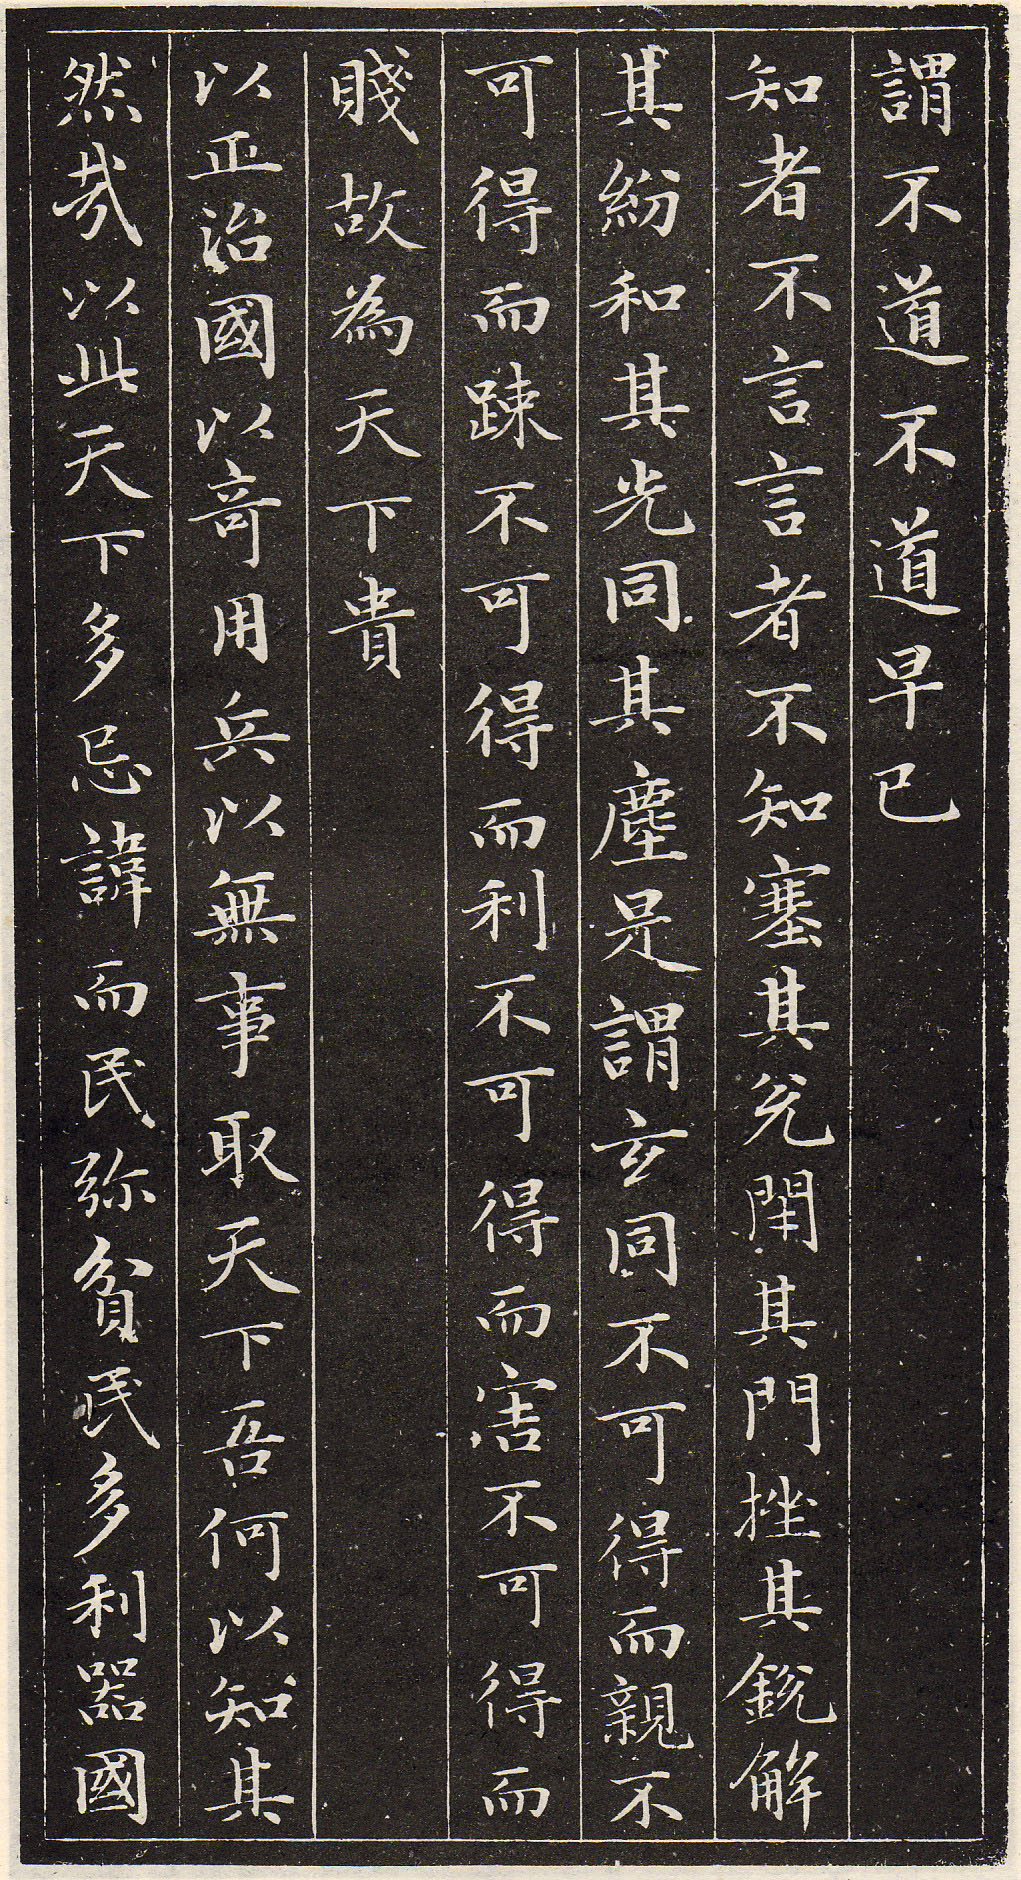 謂不道不道早已
知者不言言者不知塞其兌閇其門挫其銳解
其紛和其光同其塵是謂玄同不可得而親不
可得而踈不可得而利不可得而害不可得而
賤故為天下貴
以正治國以奇用兵以無事取天下吾何以知其
然哉以此天下多忌諱而民弥貧民多利器國